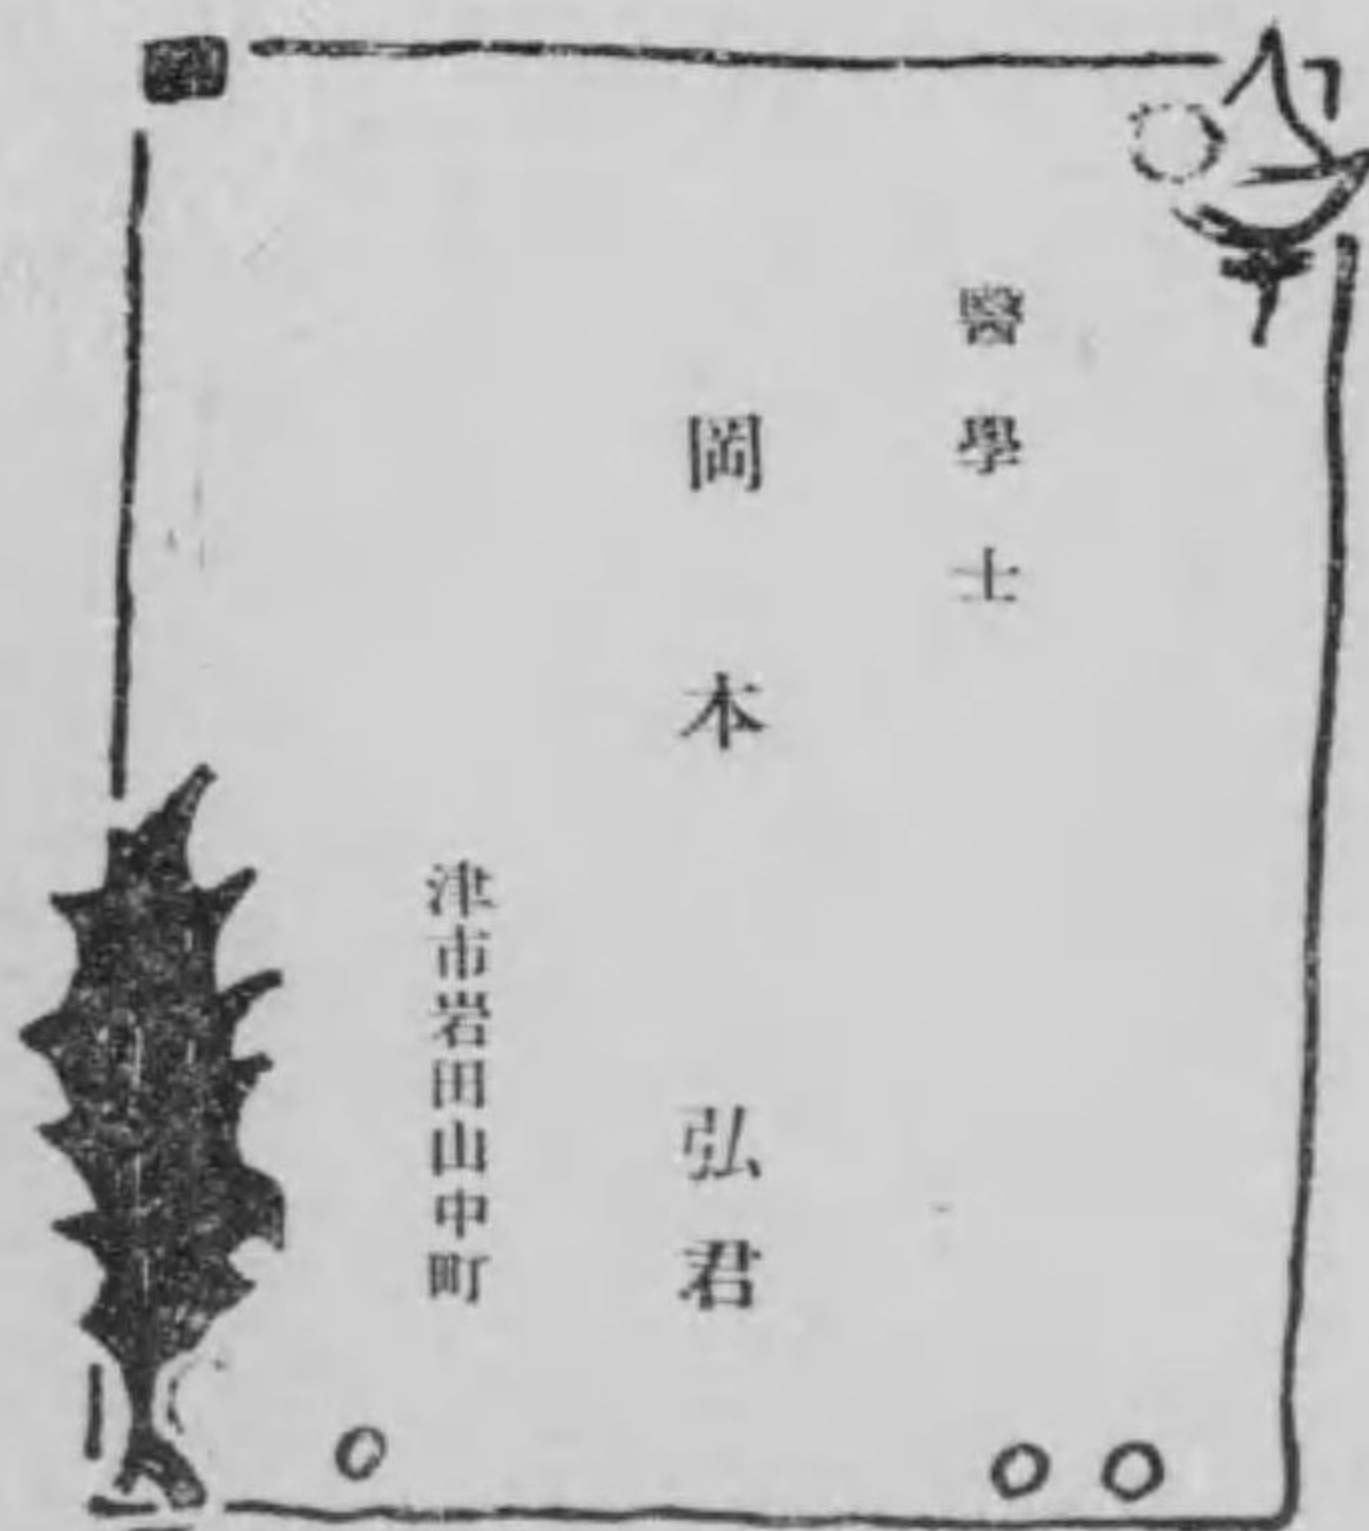 醫學士
岡本弘君
津市岩田山中町